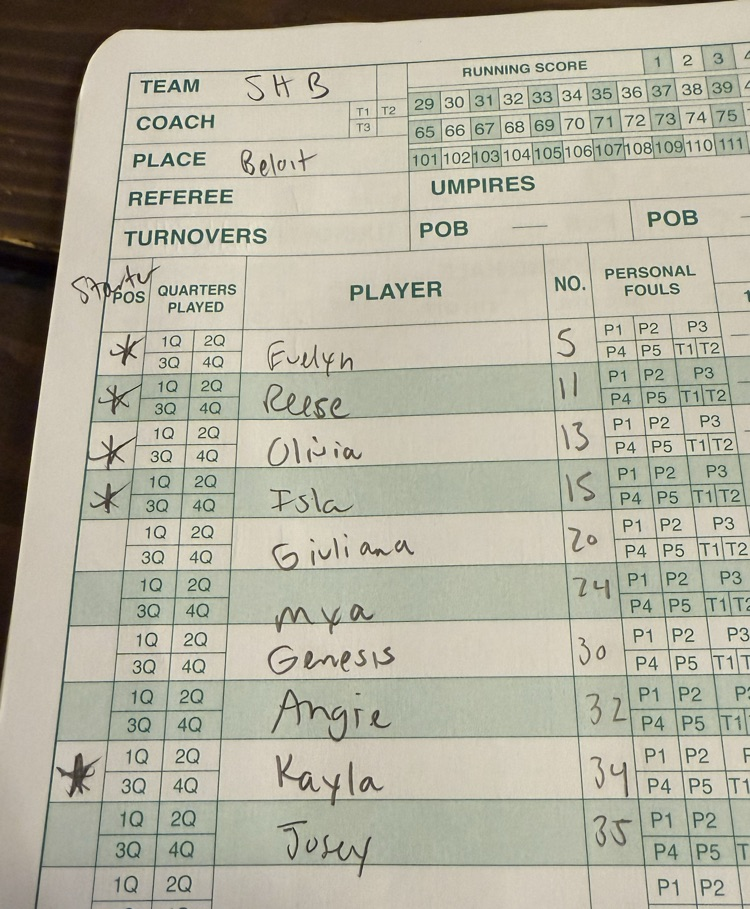 TEAM SHB
RUNNING SCORE 1 2 3
29 30 31 32 33 34 35 36 37 38 39
COACH T1 T2 T3
65 66 67 68 69 70 71 72 73 74 75
PLACE Beloit
101 102 103 104 105 106 107 108 109 110 111
REFEREE UMPIRES
TURNOVERS POB — POB
Starter
POS QUARTERS PLAYED PLAYER NO. PERSONAL FOULS
* 1Q 2Q 3Q 4Q Evelyn 5 P1 P2 P3 P4 P5 T1 T2
* 1Q 2Q 3Q 4Q Reese 11 P1 P2 P3 P4 P5 T1 T2
* 1Q 2Q 3Q 4Q Olivia 13 P1 P2 P3 P4 P5 T1 T2
* 1Q 2Q 3Q 4Q Isla 15 P1 P2 P3 P4 P5 T1 T2
1Q 2Q 3Q 4Q Giuliana 20 P1 P2 P3 P4 P5 T1 T2
1Q 2Q 3Q 4Q Mya 24 P1 P2 P3 P4 P5 T1 T2
1Q 2Q 3Q 4Q Genesis 30 P1 P2 P3 P4 P5 T1
1Q 2Q 3Q 4Q Angie 32 P1 P2 P4 P5 T1
* 1Q 2Q 3Q 4Q Kayla 34 P1 P2 P4 P5 T1
1Q 2Q 3Q 4Q Josey 35 P1 P2 P4 P5
1Q 2Q P1 P2